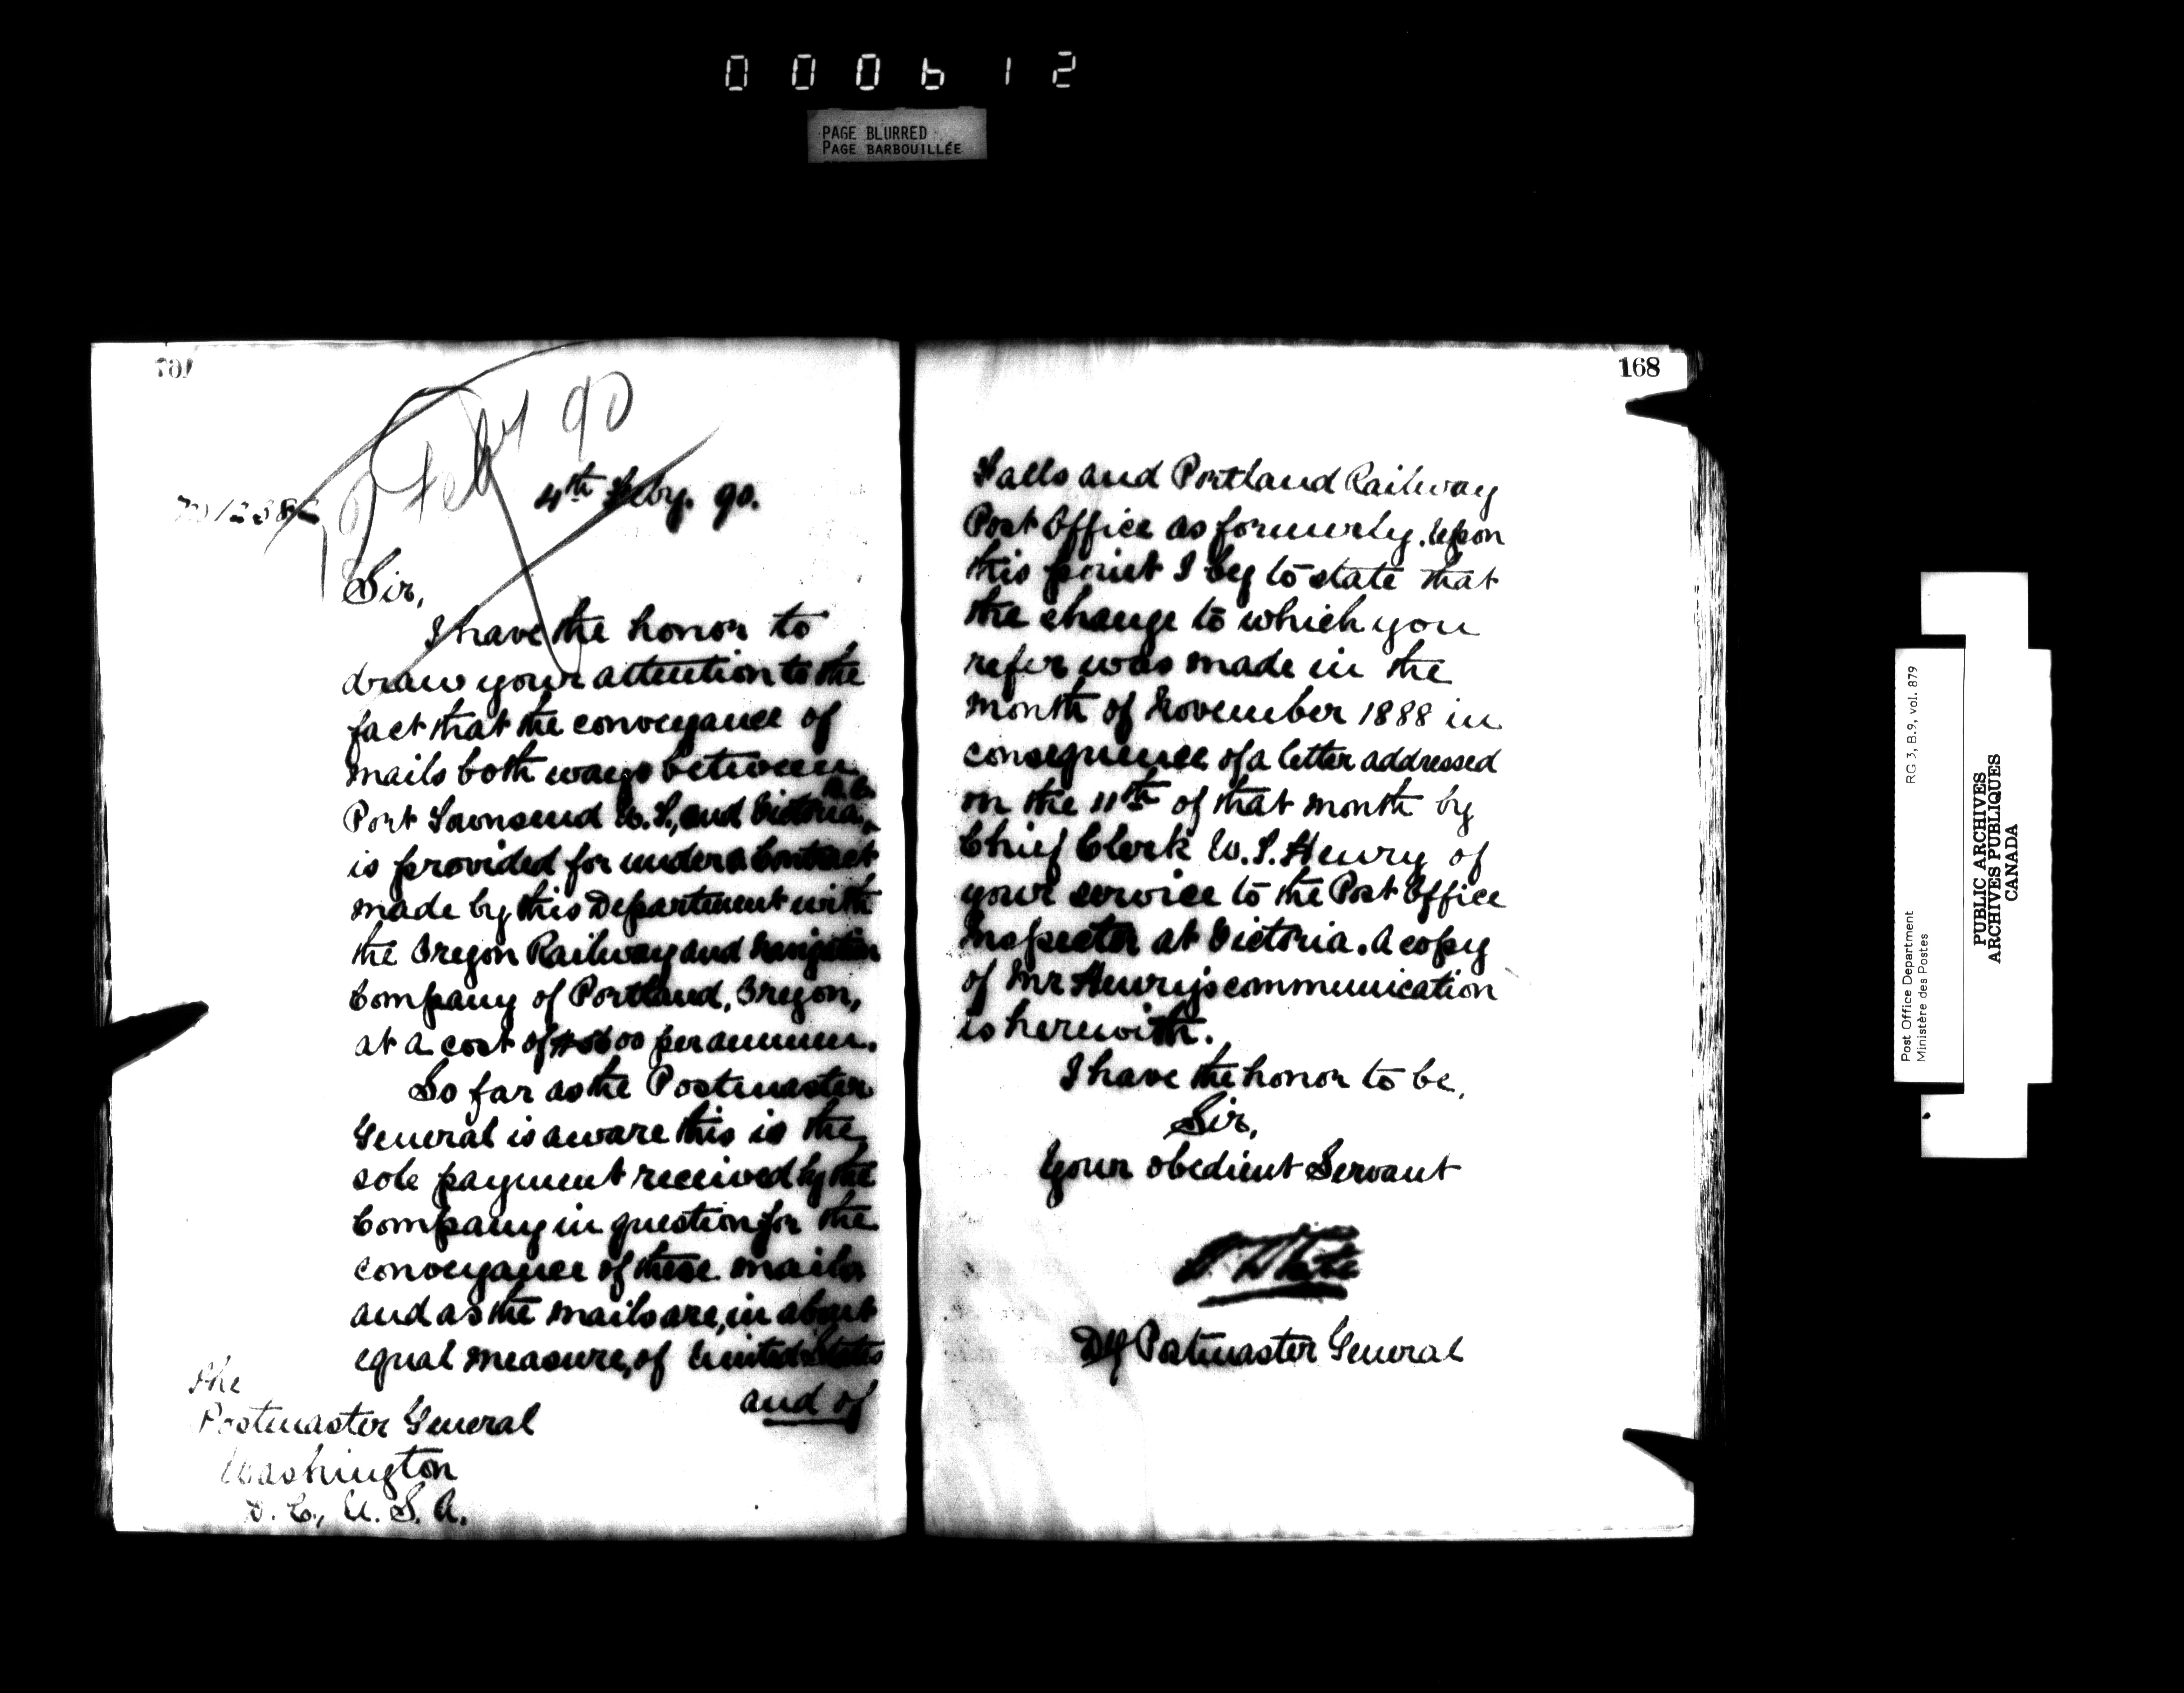 000612
PAGE BLURRED
PAGE BARBOUILLÉE
7 Feby 90
4th Feby. 90.
Sir,
I have the honor to
draw your attention to the
fact that the conveyance of
mails both ways between
Port Townsend W.T., and Victoria, B.C.
is provided for under a Contract
made by this Department with
the Oregon Railway and Navigation
Company of Portland, Oregon,
at a cost of per annum.
So far as the Postmaster
General is aware this is the
sole payment received by the
Company in question for the
conveyance of these mails
and as the mails are, in about
equal measure, of United States
and of
The
Postmaster General
Washington
D. C., U. S. A.
168
Falls and Portland Railway
Post Office as formerly. Upon
this point I beg to state that
the change to which you
refer was made in the
month of November 1888 in
consequence of a letter addressed
on the 11th of that month by
Chief Clerk Henry of
your service to the Post Office
Inspector at Victoria. A copy
of Mr Henry's communication
is herewith.
I have the honor to be,
Sir,
Your obedient Servant
White
Dy Postmaster General
Post Office Department RG 3, B.9, vol. 879
Ministère des Postes
PUBLIC ARCHIVES
ARCHIVES PUBLIQUES
CANADA